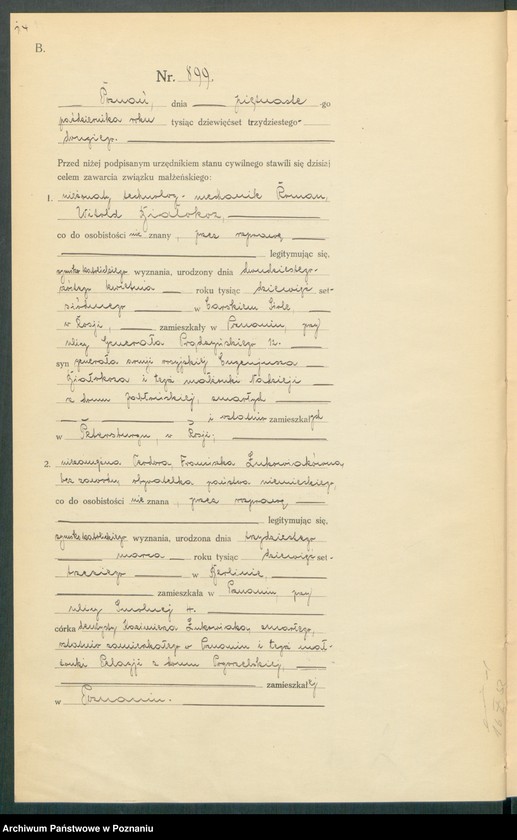 B.
Nr. 899.
Poznań, dnia piętnaste-go
października roku tysiąc dziewięćset trzydziestego
drugiego.
Przed niżej podpisanym urzędnikiem stanu cywilnego stawili się dzisiaj
celem zawarcia związku małżeńskiego:
1. nieżonaty technolog-mechanik Roman,
Witold Białokoz,
co do osobistości nie znany, przez rozprawę
legitymując się,
rzymsko katolickiego wyznania, urodzony dnia dwudziestego-
szóstego kwietnia roku tysiąc dziewięć set-
siódmego w Carskiem Siole,
w Rosji, zamieszkały w Poznaniu, przy
ulicy Generała Prądzyńskiego 12.
syn generała armji rosyjskiej Eugenjusza
Białokoza i tejż małżonki Nadzieji
z domu Jabłońskiej, zmarłych
i ostatnio zamieszkałych
w Petersburgu, w Rosji.
2. niezamężna Teodora, Franciszka Żukowiakówna,
bez zawodu, obywatelka państwa niemieckiego,
co do osobistości nie znana, przez rozprawę
legitymując się,
rzymsko katolickiego wyznania, urodzona dnia trzydziestego
marca roku tysiąc dziewięć set-
trzeciego w Berlinie,
zamieszkała w Poznaniu, przy
ulicy 4.
córka dentysty Kazimierza Żukowiaka zmarłego,
ostatnio zamieszkałego w Poznaniu i tejż mał-
żonki Pelagji z domu Pogorzelskiej,
zamieszkałej
w Poznaniu.
Archiwum Państwowe w Poznaniu